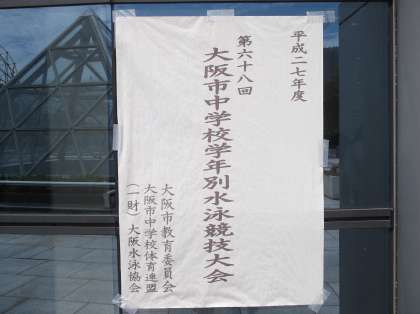 平成二七年度
第六十八回
大阪市中学校学年別水泳競技大会
大阪市教育委員会
大阪市中学校体育連盟
（一財）大阪水泳協会